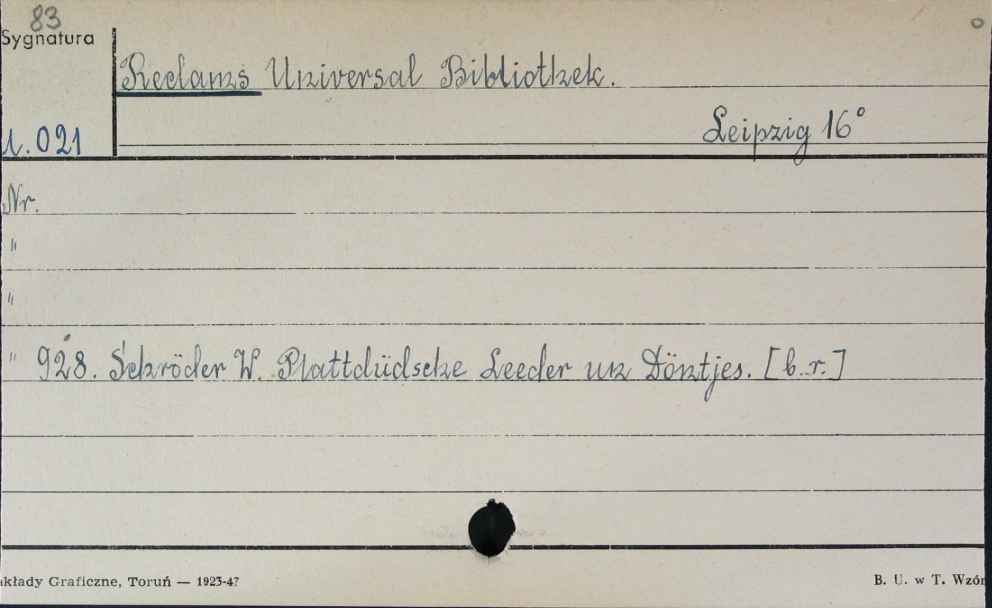 83
Sygnatura
Reclams Universal Bibliothek.
Leipzig 16°
U. 021
Nr.
"
"
" 928. Schröder W. Plattdüdsche Leeder un Döntjes. [b.r.]
kłady Graficzne, Toruń — 1923-47
B. U. w T. Wzór